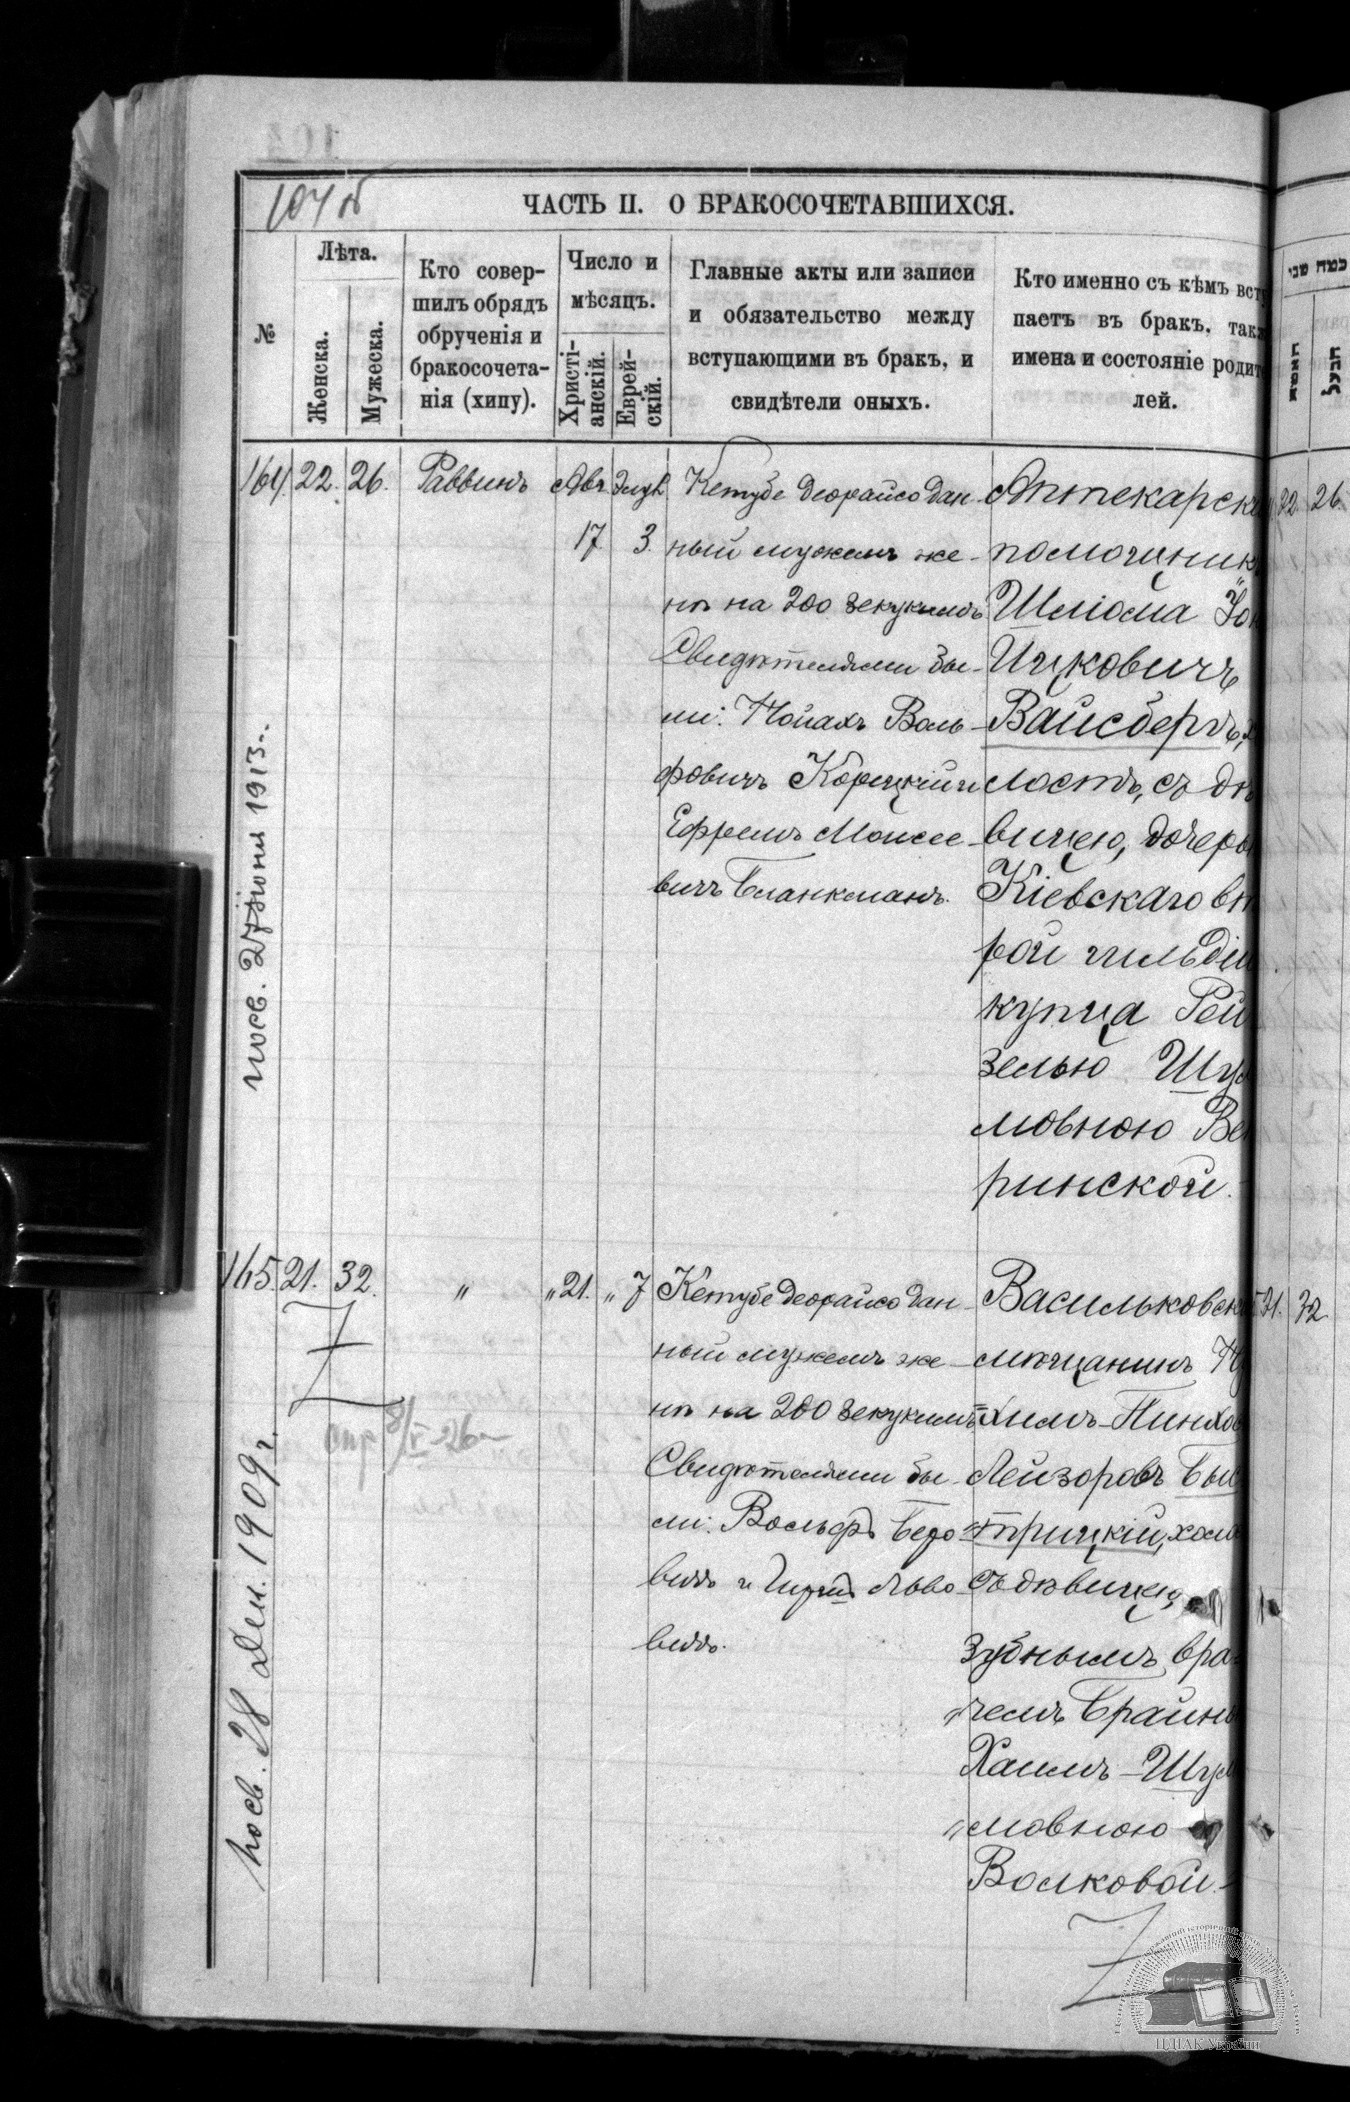 104 об
ЧАСТЬ II. О БРАКОСОЧЕТАВШИХСЯ.
№
Лѣта.
Женска.
Мужеска.
Кто совер-
шилъ обрядъ
обрученія и
бракосочета-
нія (хипу).
Число и
мѣсяцъ.
Христі-
анскій.
Еврей-
скій.
Главные акты или записи
и обязательство между
вступающими въ бракъ, и
свидѣтели оныхъ.
Кто именно съ кѣмъ всту
паетъ въ бракъ, такж
имена и состояніе родите
лей.
164. 22. 26. Раввинъ Авг. Элулъ
17 3.
Кетубе деорайсо дан-
ный мужемъ же-
нѣ на 200 зекукимъ
Свидѣтелями бы-
ли: Нойахъ Воль-
фовичъ Корецкій и
Ефремъ Моисее-
вичъ Бланкманъ.
Аптекарскі
помощникъ
Шліома Іо
Ицковичъ
Вайсбергъ, х
лостъ, съ дѣ
вицею, дочерь
Кіевскаго вт
рой гильдіи
купца Рей
зелью Шул
мовною Ве
ринской.
22. 26.
посв. 27 іюня 1913 г.
165. 21. 32. " " 21. " 7
Кетубе деорайсо дан-
ный мужемъ же-
нѣ на 200 зекукимъ
Свидѣтелями бы-
ли: Вольфъ Беро-
вичъ и Гиршъ Льво-
вичъ.
Васильковск
мѣщанинъ
химъ-Пинхос
Лейзоровъ Бы
стрицкій, холо
съ дѣвицею,
зубнымъ вра-
чемъ Брайно
Хаимъ-Шул
мовною
Волковой.
21. 32
8/V-26
посв. 28 Дек. 1909 г.
ЦДІАК України